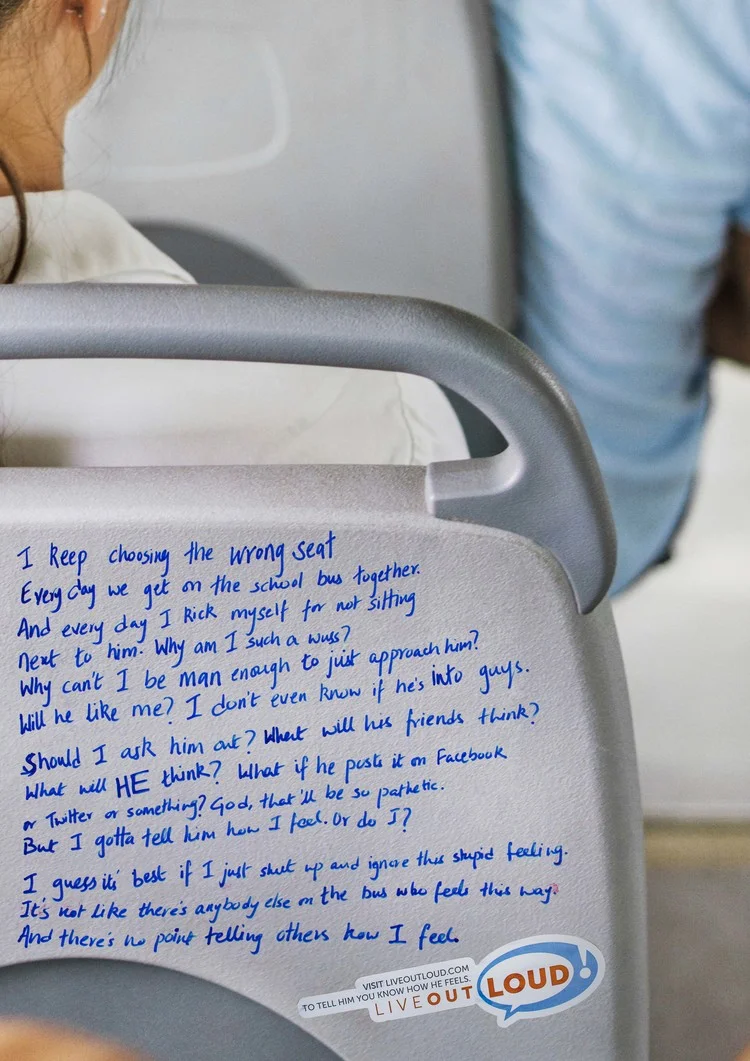 I keep choosing the wrong seat
Every day we get on the school bus together.
And every day I kick myself for not sitting
next to him. Why am I such a wuss?
Why can't I be man enough to just approach him?
Will he like me? I don't even know if he's into guys.
Should I ask him out? What will his friends think?
What will HE think? What if he posts it on Facebook
or Twitter or something? God, that'll be so pathetic.
But I gotta tell him how I feel. Or do I?
I guess it's best if I just shut up and ignore this stupid feeling.
It's not like there's anybody else on the bus who feels this way.
And there's no point telling others how I feel.
VISIT LIVEOUTLOUD.COM
TO TELL HIM YOU KNOW HOW HE FEELS.
LIVEOUT LOUD!